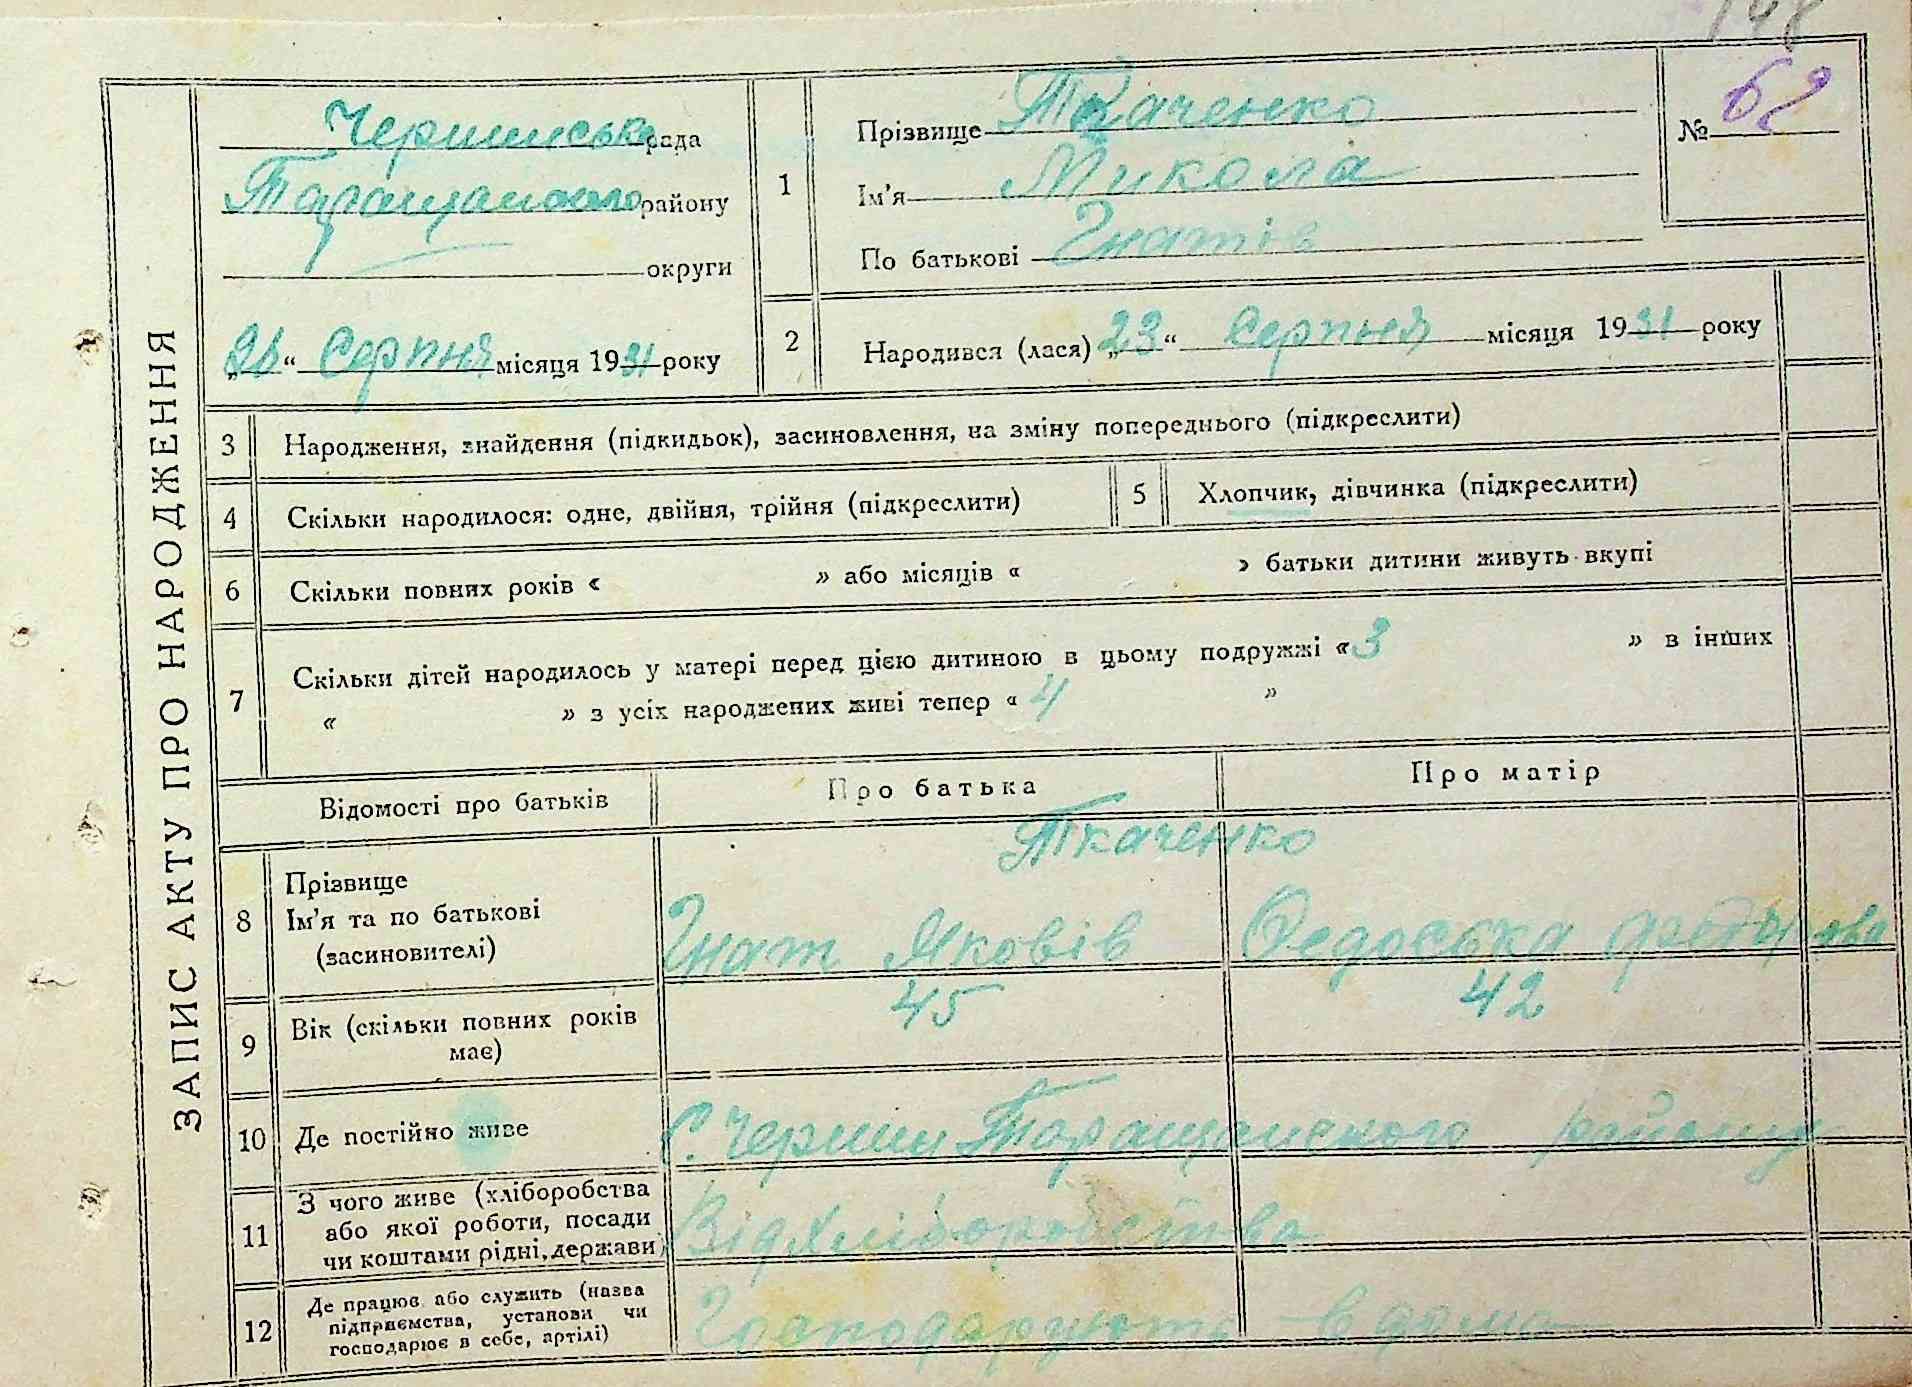 148
ЗАПИС АКТУ ПРО НАРОДЖЕННЯ
Черинська рада
Таращанського району
округи
„26“ Серпня місяця 1931 року
1
Прізвище Ткаченко
Ім'я Микола
По батькові Гнатів
№ 62
2
Народився (лася) „23“ Серпня місяця 1931 року
3 Народження, знайдення (підкидьок), засиновлення, на зміну попереднього (підкреслити)
4 Скільки народилося: одне, двійня, трійня (підкреслити)
5 Хлопчик, дівчинка (підкреслити)
6 Скільки повних років « » або місяців « » батьки дитини живуть вкупі
7 Скільки дітей народилось у матері перед цією дитиною в цьому подружжі «3 » в інших
« » з усіх народжених живі тепер « 4 »
Відомості про батьків Про батька Про матір
8 Прізвище
Ім'я та по батькові
(засиновителі)
Ткаченко
Гнат Яковів Федоська
9 Вік (скільки повних років
має)
45 42
10 Де постійно живе С. Черини Таращанского району
11 З чого живе (хліборобства
або якої роботи, посади
чи коштами рідні, держави)
Від хліборобства
12 Де працює або служить (назва
підприємства, установи чи
господарює в себе, артілі)
Господарюють в дома